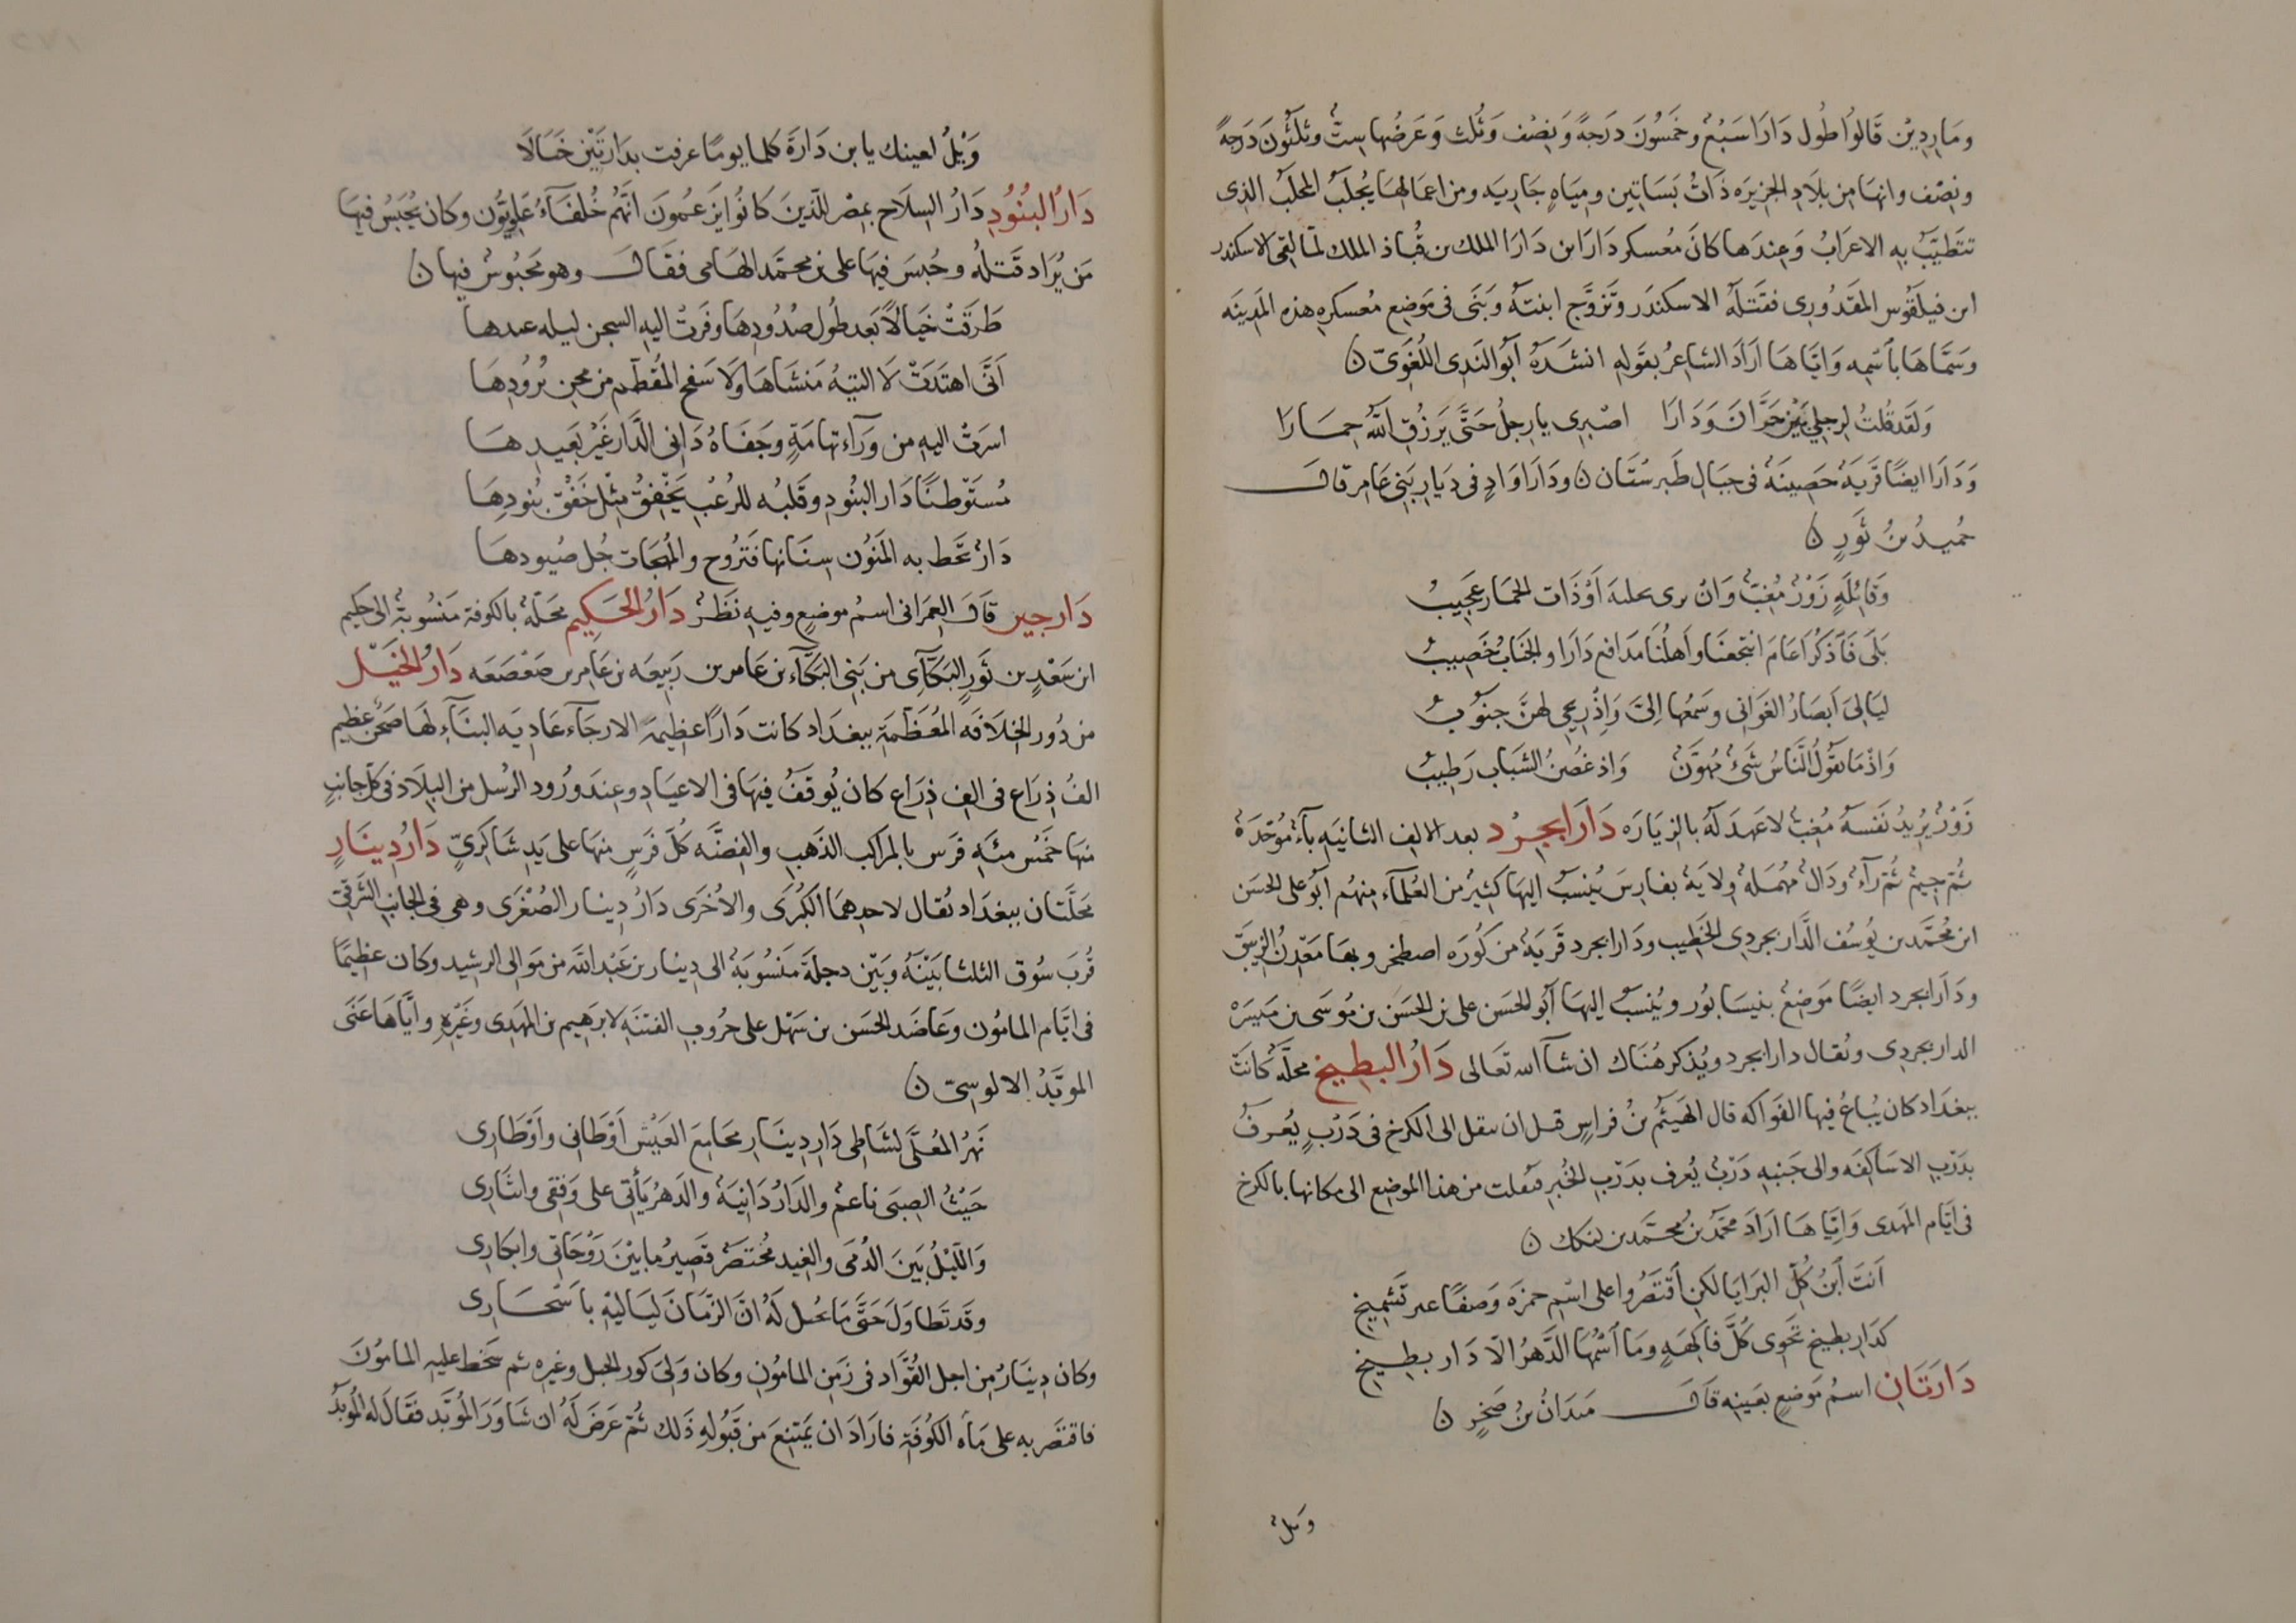 وَمَارِدِيْن قَالُوا طُول دَارَا سَبْعٌ وخَمْسُونَ دَرَجةً وَنِصْف وَثُلث وَعَرضُها سِتٌّ وثلثُونَ دَرَجةً
ونصْف وانهَا من بلَادِ الجزيرَه ذَاتُ بَسَاتين ومِيَاهٍ جَاريَه ومن اعمَالهَا يُجلَبُ المحلَبُ الذى
تتَطيَّبُ بهِ الاعرَابُ وَعِندَها كانَ مُعسكر دَارَا ابن دَارَا الملك بن قُبَاذ الملك لمّا لقى الاسكندر
ابن فيلقَوُس المقَدُورِى فقتَلَهُ الاسكندَر وَتزوَّج ابنتَهُ وَبَنَى فى مَوضِع مُعسكرِهِ هذه المَدينَه
وَسَمَّاهَا بأسمِه وَايَّاهَا ارَادَ الشاعرُ بقَولِهِ انشَدَهُ أبُو النَدِى اللُغَوىّ ن
وَلَقَد قُلتُ لرجلِي بَيْنَ حَرَّانَ وَدَارَا اصْبِرى يا رِجلُ حَتَّى يَرزُقِ اللّٰهُ حِمَارَا
وَدَارَا ايضًا قَريَةٌ حَصِينَةٌ فى جبَالِ طَبرستَان ن ودَارَا وَادٍ فى دِيَارِ بَنِى عَامر قال
حُمَيدُ بنُ ثَورٍ ن
وَقائِلَةٍ زَوْرٌ مُغِبٌّ وَانْ يرى بحليَه اَوْ ذَات الخمَار عَجِيبُ
بَلَى فَاذكُرَا عَامَ انتَجعنَا وَاَهلُنَا مَدَافِع دَارَا والجنَابُ خَصِيبُ
ليَالِىَ اَبصَارُ الغَوَانِى وسَمعُها اِلىَّ وَاذْ رِيحِى لهنَّ جنُوبُ
وَاذْ مَا يقُولُ النَّاسُ شَىْءٌ مُهَوَّنٌ وَاذ غُصْنُ الشبَاب رَطِيبُ
زَوْرٌ يُرِيدُ نَفسَهُ مُغِبٌّ لا عَهدَ لَهُ بالزيَارَه دَارَابجِرْد بعد الالف الثانيَهِ بآءٌ مُوَحّدَةٌ
ثُمّ جيمٌ ثُمّ رآءٌ ودَالٌ مُهمَلةٌ ولَايَةٌ بفَارِسَ يُنسَبُ اليهَا كثيرٌ من العُلَمآء منهُم أبُو على الحسَن
ابن مُحمَّد بن يُوسُف الدَّارَابجردِى الخَطِيب ودَارَابجرد قَريَةٌ من كُورَه اصطَخر وبهَا مَعْدِنُ الزيبَق
ودَارَابجرد ايضًا مَوضِعٌ بنيسَابُور ويُنسَبُ اليهَا أبُو الحسَن على بن الحسَن بن مُوسَى بن مَيسَرَه
الدارابجردِى ويُقال دارابجرد ويُذكر هُنَاك ان شآ الله تَعَالى دَارُ البطِيخ محلّةٌ كَانَتْ
ببغدَاد كان يُبَاعُ فيهَا الفوَاكه قال الهَيثَمُ بنُ فراسٍ قبل ان تنقل الى الكرخ فى دَرْبٍ يُعرفُ
بدَرْبِ الاسَاكفَه والى جَنبِهِ دَرْبٌ يُعرف بدَرْبِ الخُبز فنقلت من هذا الموَضِع الى مكانها بالكرخ
فى ايّام المهدى وَاِيّاهَا ارَادَ مُحمّدُ بنُ محمّد بن لنكك ن
اَنتَ اَبنُ كُلِّ البرَايَا لَكِن اَقتَصَرُوا على اسْمِ حمزَه وَصفًا غير تَشمِيخِ
كدَارِ بطيخ تَحوِى كُلَّ فاكِهةٍ وَمَا اَسمُهَا الدَّهرَ الّا دَار بِطيخِ
دَارَتَانِ اسمُ مَوضعٍ بعَينِه قال مَيدَانُ بنُ صَخرٍ ن
ويلٌ
وَيْلٌ لعينك يا بن دَارَةَ كلما يومًا عرفت بدَارَتَيْن خَيَالَا
دَارُ البُنُوُدِ دَارُ السِلَاح بمصْر للّذينَ كَانُوا يَزعمُونَ انَّهُم خُلفَآءُ عَلويُّون وكان يُحبَسُ فيهَا
مَن يُرَاد قَتلُه وحُبسَ فيهَا على بن محمَّد الهَامى فقَال وهو مَحبُوسٌ فيها ن
طَرقَتْ خَيَالًا بَعد طُول صُدُودِهَا وفَرَتْ اليهِ السجن ليله عيدها
اَنَّى اهتَدَتْ لَا التِيهُ مَنشَاهَا وَلَا سَفح المُقطَّم من مجرِ بُرُودِهَا
اسرَتْ اليهِ من وَرَآء تهامَةٍ وجَفَاهُ دَانِى الدَّار غَيْرُ بَعِيدِهَا
مُستَوْطنًا دَار البنُودِ وقَلبُه للرُعْبِ يَخْفِقُ مِثل خَفْق بُنودِهَا
دَارٌ تحَط به المَنوُن سِنَانها فَتَرُوح والمُهجَات جُل صُيودهَا
دَارجين قال العمرَانى اسمُ موضعٍ وفيهِ نَظَرٌ دَارُ الحَكِيم محَلّةٌ بالكوفة مَنسُوبةٌ الى حَكِيم
ابن سَعْدِ بن ثَورٍ البَكَّآىِ من بَنِى البَكَّآء بن عَامر بن رَبيعَه بن عَامِر بن صَعْصَعَه دَارُ الخَيْل
من دُور الخِلَافَه المُعَظَّمَةِ ببغدَاد كانت دَارًا عظِيمَةَ الارجَآء عَادِيَه البنَآءِ لهَا صَحنٌ عظيم
الفُ ذِرَاع فى الف ذِرَاع كان يُوقَفُ فيهَا فى الاعيَادِ وعِندَ ورُود الرسُل من البِلَاد فى كل جانبٍ
منهَا خَمسُ مئَه فَرَس بالمراكب الذَهبِ والفضَّه كُلّ فَرَسٍ منهَا على يَدِ شَاكرِىٍّ دَارُ دِينَارٍ
مَحَلَّتَان ببغدَاد يُقال لاحدِهمَا الكُبرَى والاُخرَى دَارُ دِينار الصُغْرَى وهى فى الجانب الشرقىّ
قُربَ سُوق الثلثا بَيْنَهُ وبَيْن دجلَةَ منسُوبَةٌ الى دِينار بن عَبْد اللّٰه من مَوالى الرشيد وكان عظيمًا
فى ايّام المامُون وعَاضَد الحسَن بن سَهْل على حرُوب الفتنَهِ لابرَهيم بن المهدِى وغَيْرِهِ وايَّاهَا عَنَى
المويَّدُ الالوسىّ ن
نَهرُ المُعلَّى لشَاطِى دَارِ دِينَار مجَامِعَ العَيْش اَوْطَانِى واَوْطَارِى
حَيْثُ الصِبَى ناعمٌ والدَارُ دَانيَةٌ والدَهرُ يَأتِى على وَفقِى وايثَارِى
وَاللَيْلُ بَينَ الدُمَى والغِيد مُختَصَرٌ قَصِيرُ ما بَيْنَ رَوْحَاتِى وابكارِى
وقَد تَطَاوَلَ حَتَّى مَا تخيل لَهُ انّ الزَمَانَ لَيَاليهِ بأسْحَارِى
وكان دِينَارٌ مِن اجل القُوَّاد فى زَمَنِ المامُون وكان وَلِىَ كور الجبل وغيرِه ثم سَخط عليهِ المامُونَ
فاقتصَر به على مَآه الكُوفَةِ فارَادَ ان يَمتنِعَ من قَبُولهِ ذَلك ثُمّ عرَضَ لَهُ ان شَاوَرَ المُوبَد فقَال لَهُ المُوبَدُ